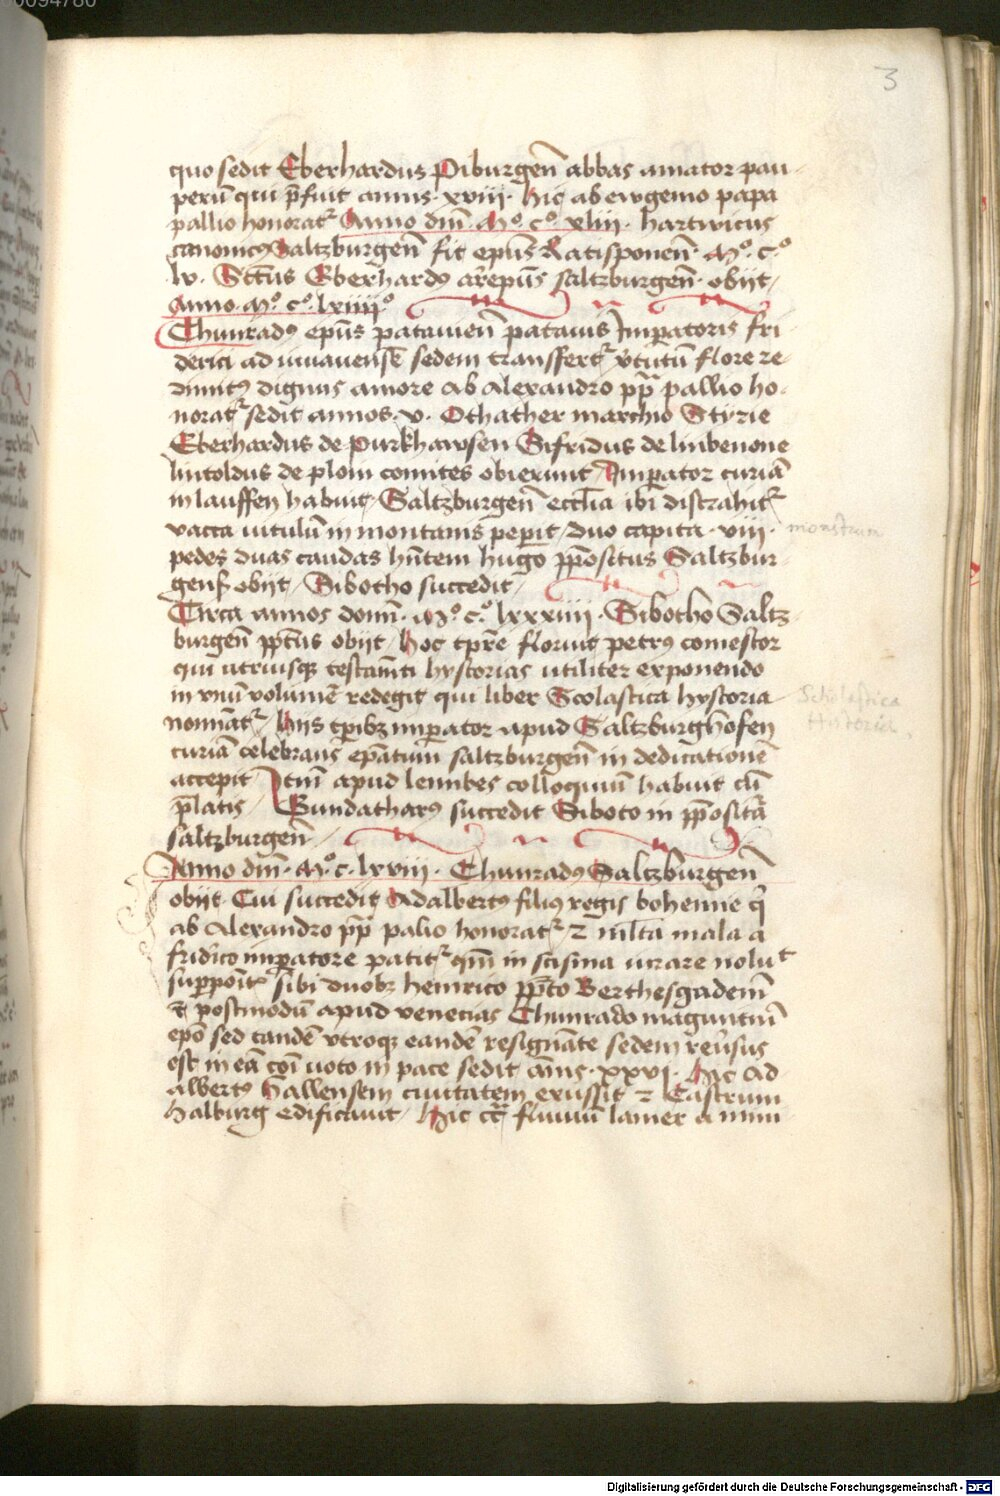 3
quo sedit Eberhardus Piburgen̄ abbas amator pau-
perū qui p̄fuit annis · xviii · hic ab ewgenio papa
pallio honorat᷑ Anno dm̄ · Mº · cº · xliii · hartwicus
canonicꝰ Saltzburgen̄ fit ep̄us Ratisponen̄ · Mº · cº
lv · Sct̄us Eberhardꝰ arēpūs saltzburgen̄ · obijt
Anno · Mº · cº · lxiiiiº
Chunradꝰ ep̄us patauien̄ patauis Imp̄atoris fri-
derici ad iuuauensē sedem transffert᷑ v̄tutū flore re-
dimitꝰ dignus amore ab Alexandro pp̄ pallio ho-
norat᷑ sedit annos · v · Othather marchio Styrie
Eberhardus de purkhawsen Sifridus de liubenone
liutoldus de ploin comites obierunt Imp̄ator curiā
in lauffen habuit Saltzburgen̄ eccl̄ia ibi distrahit᷑
vacca uitulū in montanis pep̄it duo capita · viii ·
monstrum
pedes duas caudas hn̄tem hugo pp̄ositus Saltzbur-
gens̄ obijt Sibotho succedit
Circa annos domī · Mº · cº · lxxxiiii · Sibotho Saltz-
burgen̄ pp̄tus obijt hoc tp̄re floruit petrus comestor
qui utriusqꝫ testam̄ti hystorias utiliter exponendo
in vnū volumē redegit qui liber Scolastica hystoria
Scholastica
Historia.
nomīat᷑ hijs tp̄ibꝫ imp̄ator apud Saltzburghofen
curiā celebrans ep̄atum saltzburgen̄ in dedicationē
accepit Itm̄ apud leunbes colloquiū habuit cū
p̄latis Gundatharꝰ succedit Siboto in pp̄ositā
saltzburgen̄
Anno dm̄ · Mº · c · lxviii · Chunradꝰ Saltzburgen̄
obijt Cui succedit Adalbertꝰ filiꝰ regis bohemie q̄
ab Alexandro pp̄ palio honorat᷑ ⁊ mlt̄a mala a
frid̄ico imp̄atore patit᷑ qm̄ in scisma iurare noluit
supponit᷑ sibi duobꝫ heinrico pp̄to Berthesgadem̄
⁊ postmodū apud venecias Chunrado maguntinū
ep̄o sed tandē vtroqꝫ eandē resignāte sedem reūsus
est in eā cōi uoto in pace sedit ānis · xxvi · hic Ad-
albertꝰ hallensem ciuitatem exussit ⁊ Castrum
halburg edificauit hic cc̄ fluuiū lamer a mini
Digitalisierung gefördert durch die Deutsche Forschungsgemeinschaft - DFG